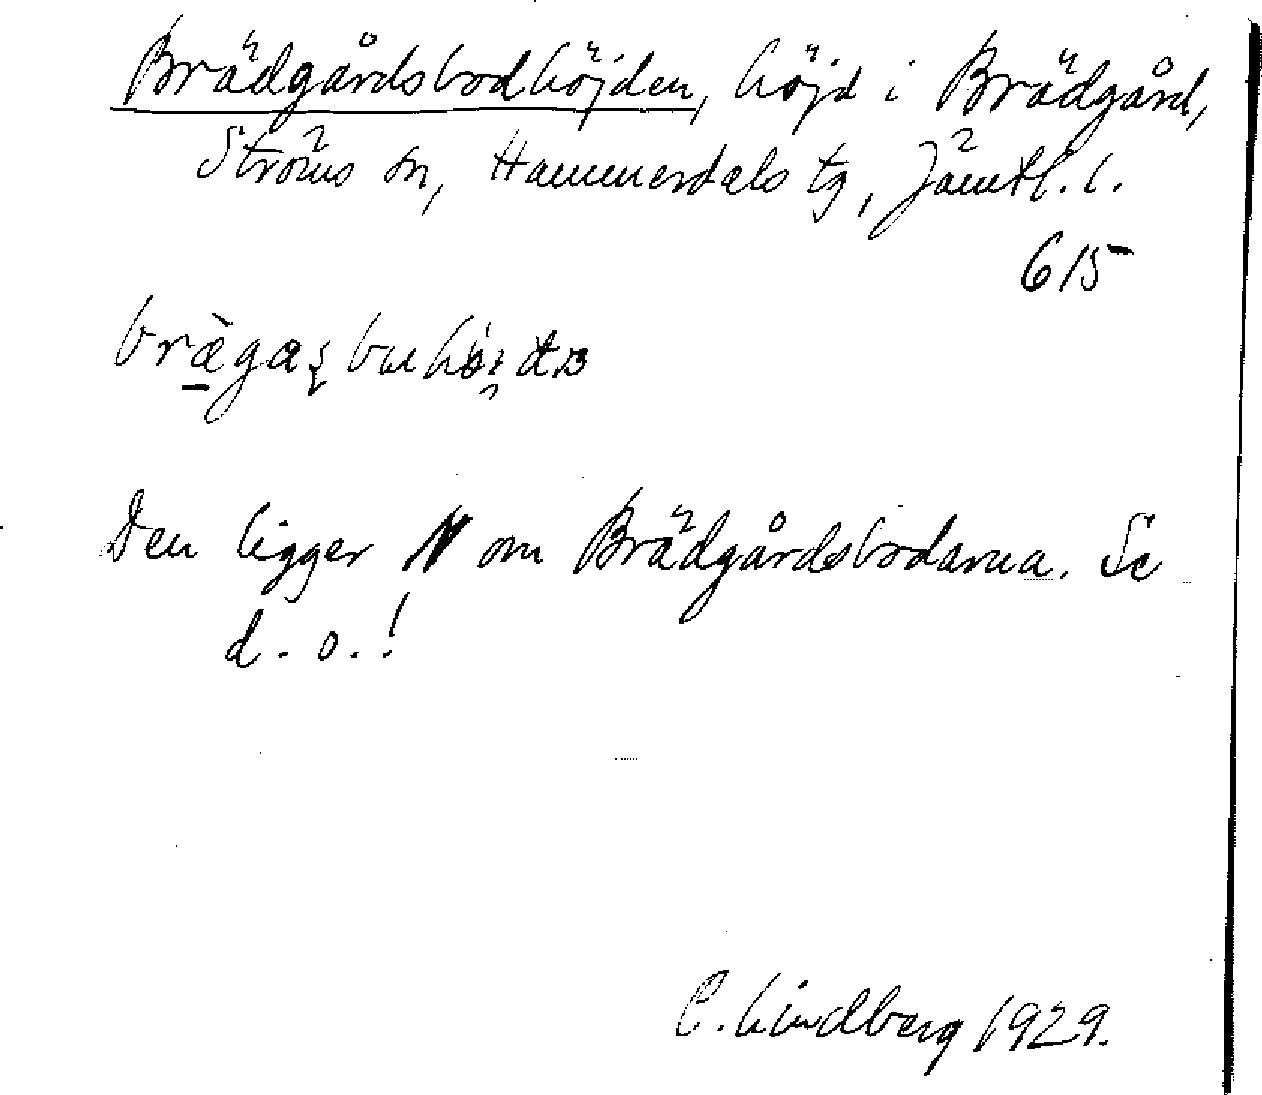 Brädgårdsbodhöjden, höjd i Brädgård,
Ströms sn, Hammerdals tg, Jämtl. l.
615
Den ligger N om Brädgårdsbodarna. Se
d. o.!
C. Lindberg 1929.